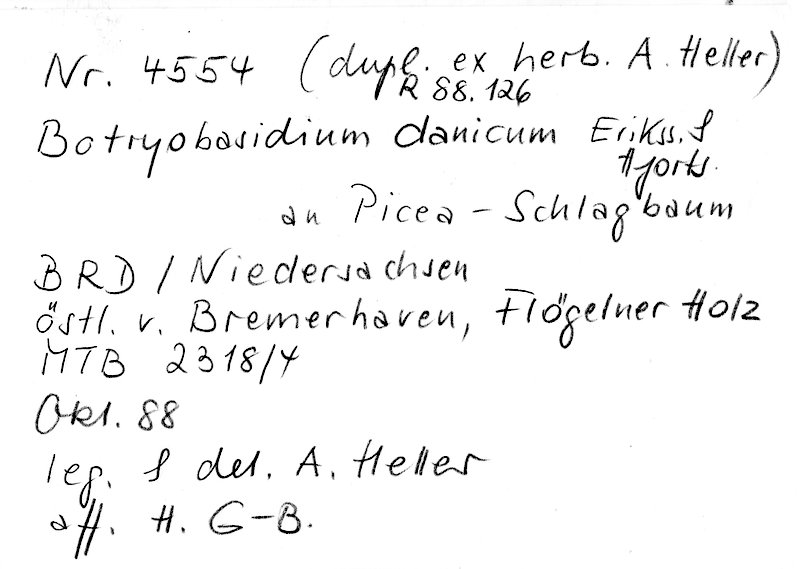 Nr. 4554 (dupl. ex herb. A. Heller)
R 88.126
Botryobasidium danicum Erikss. &
Hjorts.
an Picea - Schlagbaum
BRD / Niedersachsen
östl. v. Bremerhaven, Flögelner Holz
MTB 2318/4
Okt. 88
leg. & det. A. Heller
aff. H. G-B.